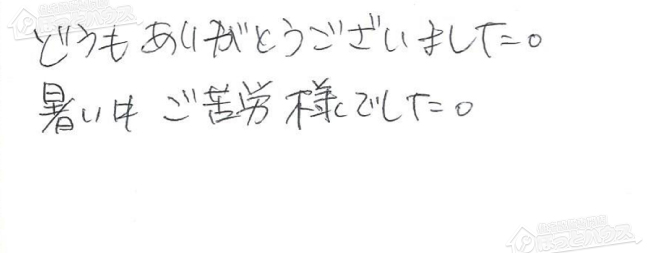 どうもありがとうございました。
暑い中 ご苦労様でした。